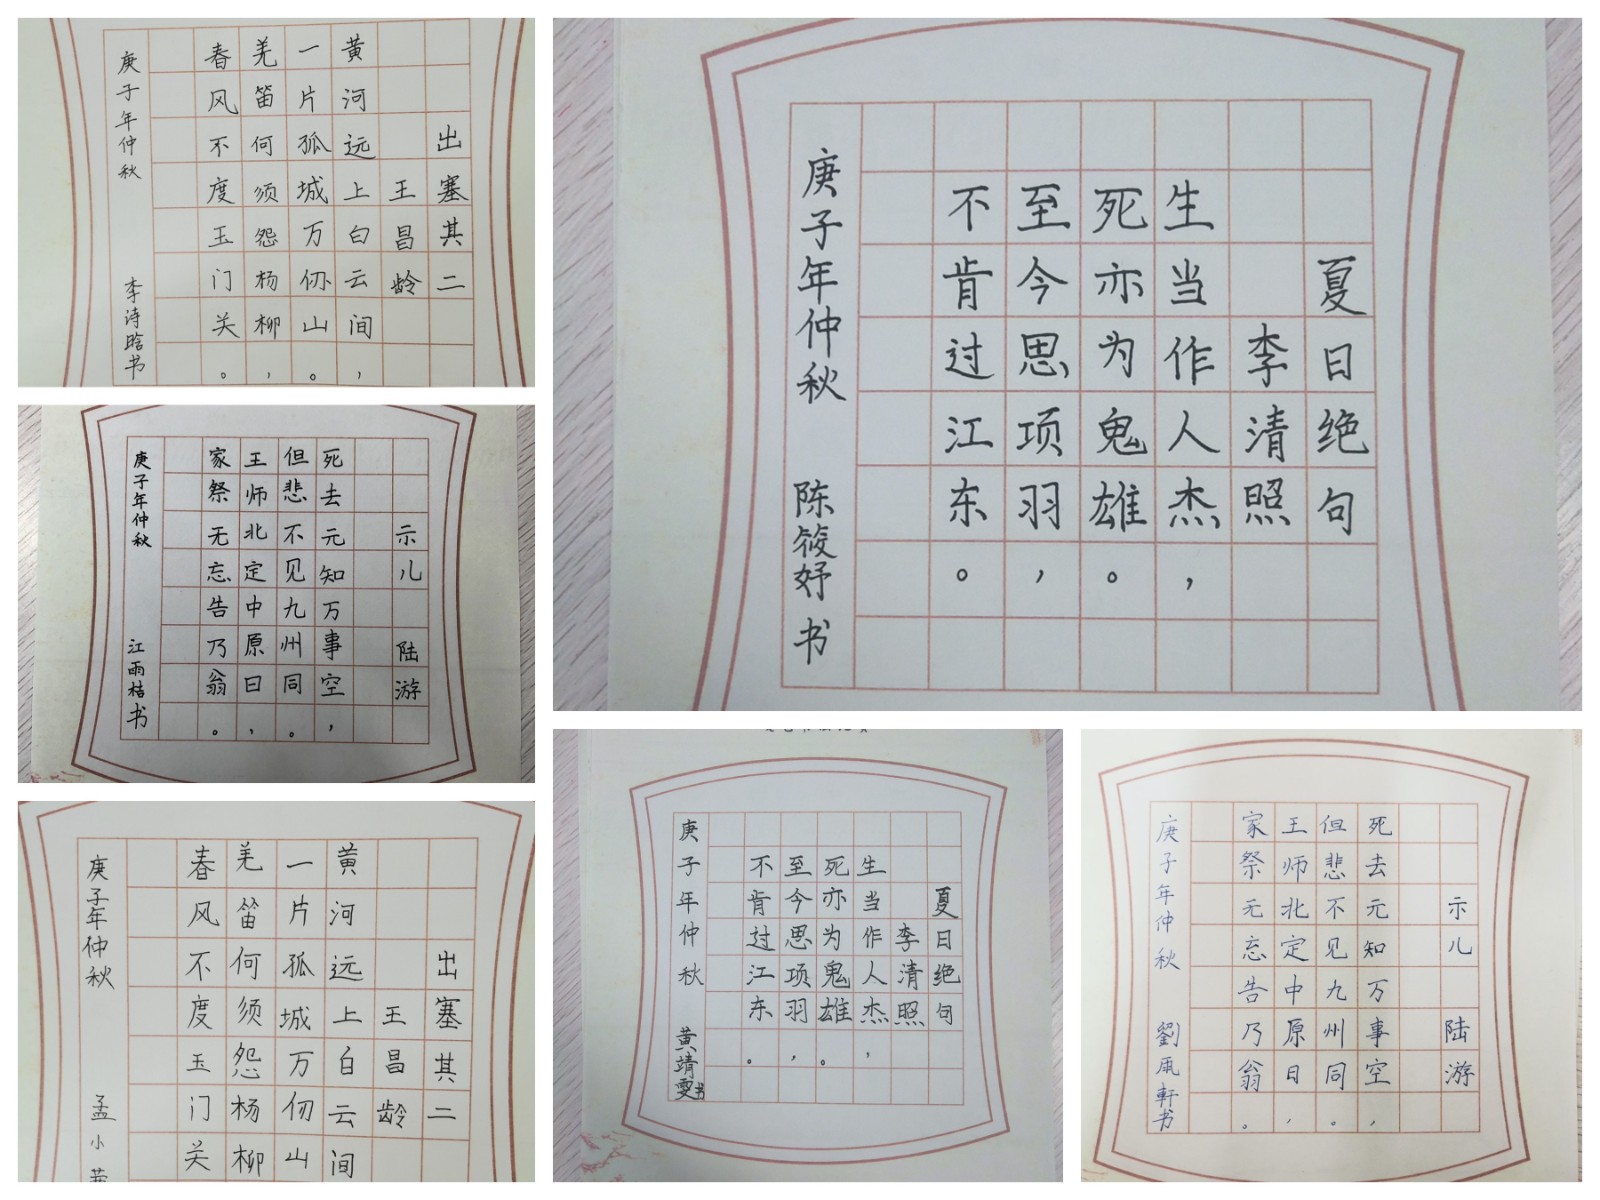 出塞其二
王昌龄
黄河远上白云间，
一片孤城万仞山。
羌笛何须怨杨柳，
春风不度玉门关。
庚子年仲秋 李诗晗书
夏日绝句
李清照
生当作人杰，
死亦为鬼雄。
至今思项羽，
不肯过江东。
庚子年仲秋 陈筱妤书
示儿 陆游
死去元知万事空，
但悲不见九州同。
王师北定中原日，
家祭无忘告乃翁。
庚子年仲秋 江雨桔书
出塞其二
王昌龄
黄河远上白云间
一片孤城万仞山
羌笛何须怨杨柳
春风不度玉门关
庚子年仲秋 孟小
夏日绝句
李清照
生当作人杰，
死亦为鬼雄。
至今思项羽，
不肯过江东。
庚子年仲秋 黄靖雯书
示儿 陆游
死去元知万事空，
但悲不见九州同。
王师北定中原日，
家祭无忘告乃翁。
庚子年仲秋 劉雨軒书